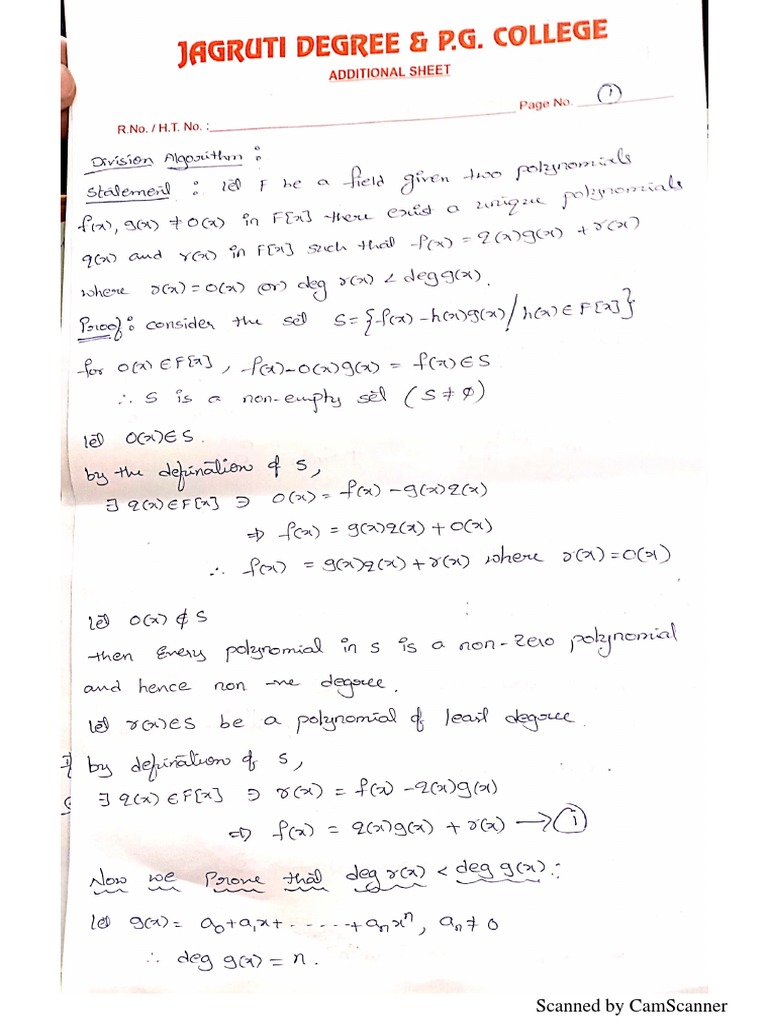 JAGRUTI DEGREE & P.G. COLLEGE
ADDITIONAL SHEET
Page No. 1
R.No. / H.T. No. :
Division Algorithm :
Statement : let F be a field given two polynomials
f(x), g(x) ≠ 0(x) in F[x] there exist a unique polynomials
q(x) and r(x) in F[x] such that f(x) = q(x)g(x) + r(x)
where r(x) = 0(x) (or) deg r(x) < deg g(x).
Proof : consider the set S = {f(x) - h(x)g(x) / h(x) ∈ F[x]}
for 0(x) ∈ F[x], f(x) - 0(x)g(x) = f(x) ∈ S
∴ S is a non-empty set (S ≠ ∅)
let 0(x) ∈ S.
by the defination of S,
∃ q(x) ∈ F[x] ∋ 0(x) = f(x) - g(x)q(x)
⇒ f(x) = g(x)q(x) + 0(x)
∴ f(x) = g(x)q(x) + r(x) where r(x) = 0(x)
let 0(x) ∉ S
then Every polynomial in S is a non-zero polynomial
and hence non -ve degree.
let r(x) ∈ S be a polynomial of least degree.
by defination of S,
∃ q(x) ∈ F[x] ∋ r(x) = f(x) - q(x)g(x)
⇒ f(x) = q(x)g(x) + r(x) → ①
Now we Prove that deg r(x) < deg g(x) :
let g(x) = a₀ + a₁x + ...... + aₙxⁿ, aₙ ≠ 0
∴ deg g(x) = n.
Scanned by CamScanner